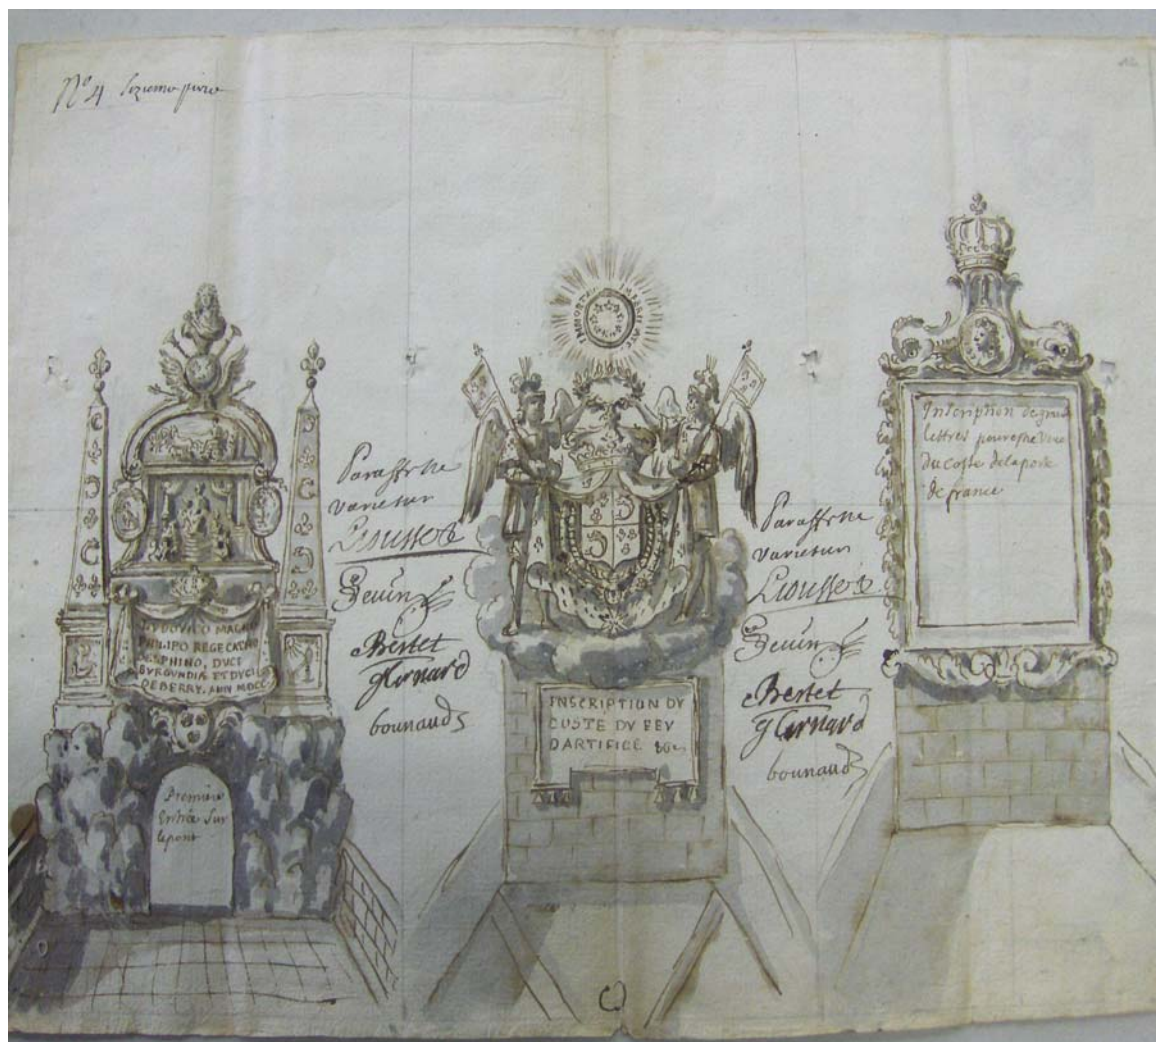 No 4
LVDOVICO MAGNO
PHILIPO REGE CATHO
DELPHINO, DVCI
BVRGVNDIÆ ET DVCI
DE BERRY. ANN MDCC
Premiere
Entrée Sur
le pont
Paraffé ne
varietur
Geuin
Bertet
bounaud
IMMORTALI
INSCRIPTION DV
COSTE DV FEV
DARTIFICE
Paraffé ne
varietur
Geuin
Bertet
bounaud
Inscription de grand
lettres pour estre veue
du Coste de la porte
de france